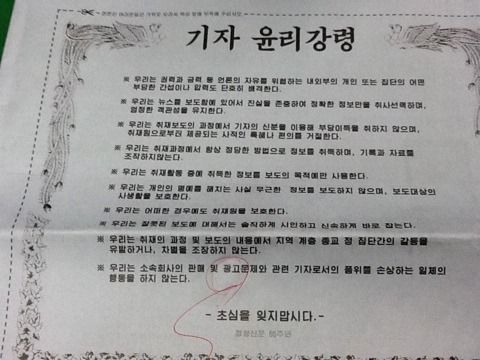 기자 윤리강령
※ 우리는 권력과 금력 등 언론의 자유를 위협하는 내외부의 개인 또는 집단의 어떤
부당한 간섭이나 압력도 단호히 배격한다.
※ 우리는 뉴스를 보도함에 있어서 진실을 존중하여 정확한 정보만을 취사선택하며,
엄정한 객관성을 유지한다.
※ 우리는 취재보도의 과정에서 기자의 신분을 이용해 부당이득을 취하지 않으며,
취재원으로부터 제공되는 사적인 특혜나 편의를 거절한다.
※ 우리는 취재과정에서 항상 정당한 방법으로 정보를 취득하며, 기록과 자료를
조작하지않는다.
※ 우리는 취재활동 중에 취득한 정보를 보도의 목적에만 사용한다.
※ 우리는 개인의 명예를 해치는 사실 무근한 정보를 보도하지 않으며, 보도대상의
사생활을 보호한다.
※ 우리는 어떠한 경우에도 취재원을 보호한다.
※ 우리는 잘못된 보도에 대해서는 솔직하게 시인하고 신속하게 바로 잡는다.
※ 우리는 취재의 과정 및 보도의 내용에서 지역 계층 종교 성 집단간의 갈등을
유발하거나, 차별을 조장하지 않는다.
※ 우리는 소속회사의 판매 및 광고문제와 관련 기자로서의 품위를 손상하는 일체의
행동을 하지 않는다.
- 초심을 잊지맙시다.-